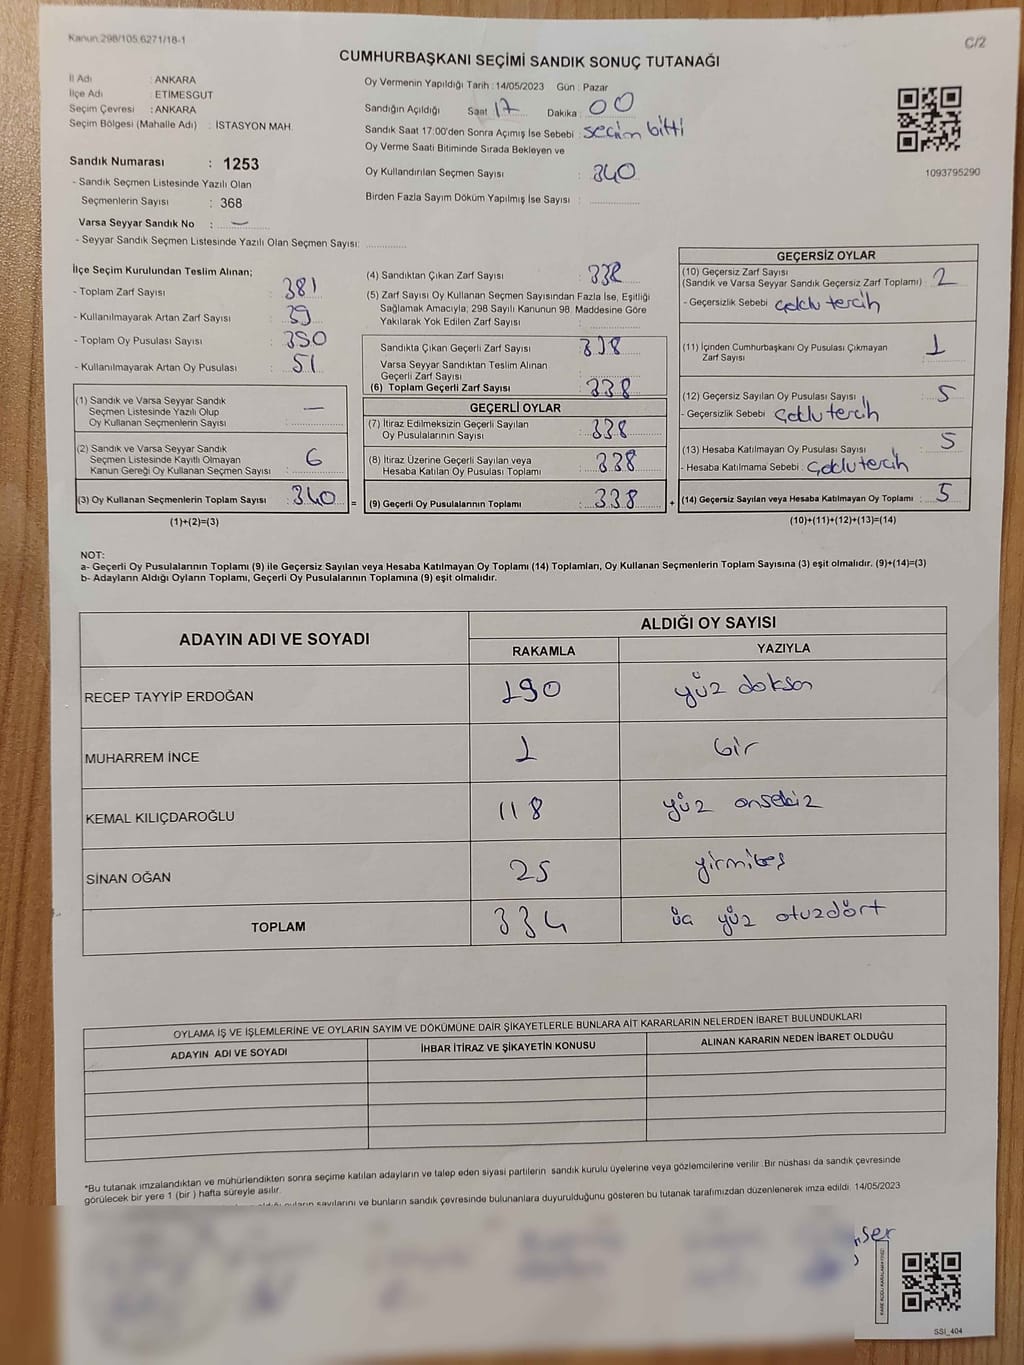 Kanun:298/105,6271/18-1
C/2
CUMHURBAŞKANI SEÇİMİ SANDIK SONUÇ TUTANAĞI
İl Adı : ANKARA
İlçe Adı : ETİMESGUT
Seçim Çevresi : ANKARA
Seçim Bölgesi (Mahalle Adı) : İSTASYON MAH.
Sandık Numarası : 1253
- Sandık Seçmen Listesinde Yazılı Olan
Seçmenlerin Sayısı : 368
Varsa Seyyar Sandık No : —
- Seyyar Sandık Seçmen Listesinde Yazılı Olan Seçmen Sayısı: ............
Oy Vermenin Yapıldığı Tarih : 14/05/2023 Gün : Pazar
Sandığın Açıldığı Saat 17 Dakika : 00
Sandık Saat 17:00'den Sonra Açımış İse Sebebi : seçim bitti
Oy Verme Saati Bitiminde Sırada Bekleyen ve
Oy Kullandırılan Seçmen Sayısı : 340
Birden Fazla Sayım Döküm Yapılmış İse Sayısı : ...............
1093795290
İlçe Seçim Kurulundan Teslim Alınan;
- Toplam Zarf Sayısı : 381
- Kullanılmayarak Artan Zarf Sayısı : 39
- Toplam Oy Pusulası Sayısı : 350
- Kullanılmayarak Artan Oy Pusulası : 51
(1) Sandık ve Varsa Seyyar Sandık
Seçmen Listesinde Yazılı Olup
Oy Kullanan Seçmenlerin Sayısı : —
(2) Sandık ve Varsa Seyyar Sandık
Seçmen Listesinde Kayıtlı Olmayan
Kanun Gereği Oy Kullanan Seçmen Sayısı : 6
(3) Oy Kullanan Seçmenlerin Toplam Sayısı : 340 =
(1)+(2)=(3)
(4) Sandıktan Çıkan Zarf Sayısı : 338
(5) Zarf Sayısı Oy Kullanan Seçmen Sayısından Fazla İse, Eşitliği
Sağlamak Amacıyla, 298 Sayılı Kanunun 98. Maddesine Göre
Yakılarak Yok Edilen Zarf Sayısı : ...............
Sandıkta Çıkan Geçerli Zarf Sayısı : 338
Varsa Seyyar Sandıktan Teslim Alınan
Geçerli Zarf Sayısı :
(6) Toplam Geçerli Zarf Sayısı : 338
GEÇERLİ OYLAR
(7) İtiraz Edilmeksizin Geçerli Sayılan
Oy Pusulalarının Sayısı : 338
(8) İtiraz Üzerine Geçerli Sayılan veya
Hesaba Katılan Oy Pusulası Toplamı : 338
(9) Geçerli Oy Pusulalarının Toplamı : 338 +
GEÇERSİZ OYLAR
(10) Geçersiz Zarf Sayısı
(Sandık ve Varsa Seyyar Sandık Geçersiz Zarf Toplamı) : 2
- Geçersizlik Sebebi : çoklu tercih
(11) İçinden Cumhurbaşkanı Oy Pusulası Çıkmayan
Zarf Sayısı : 1
(12) Geçersiz Sayılan Oy Pusulası Sayısı : 5
- Geçersizlik Sebebi : çoklu tercih
(13) Hesaba Katılmayan Oy Pusulası Sayısı : 5
- Hesaba Katılmama Sebebi : çoklu tercih
(14) Geçersiz Sayılan veya Hesaba Katılmayan Oy Toplamı : 5
(10)+(11)+(12)+(13)=(14)
NOT:
a- Geçerli Oy Pusulalarının Toplamı (9) ile Geçersiz Sayılan veya Hesaba Katılmayan Oy Toplamı (14) Toplamları, Oy Kullanan Seçmenlerin Toplam Sayısına (3) eşit olmalıdır. (9)+(14)=(3)
b- Adayların Aldığı Oyların Toplamı, Geçerli Oy Pusulalarının Toplamına (9) eşit olmalıdır.
ADAYIN ADI VE SOYADI
ALDIĞI OY SAYISI
RAKAMLA YAZIYLA
RECEP TAYYİP ERDOĞAN 190 yüz doksan
MUHARREM İNCE 1 bir
KEMAL KILIÇDAROĞLU 118 yüz onsekiz
SİNAN OĞAN 25 yirmibeş
TOPLAM 334 üç yüz otuzdört
OYLAMA İŞ VE İŞLEMLERİNE VE OYLARIN SAYIM VE DÖKÜMÜNE DAİR ŞİKAYETLERLE BUNLARA AİT KARARLARIN NELERDEN İBARET BULUNDUKLARI
ADAYIN ADI VE SOYADI İHBAR İTİRAZ VE ŞİKAYETİN KONUSU ALINAN KARARIN NEDEN İBARET OLDUĞU
*Bu tutanak imzalandıktan ve mühürlendikten sonra seçime katılan adayların ve talep eden siyasi partilerin sandık kurulu üyelerine veya gözlemcilerine verilir. Bir nüshası da sandık çevresinde
görülecek bir yere 1 (bir ) hafta süreyle asılır.
sayılarını ve bunların sandık çevresinde bulunanlara duyurulduğunu gösteren bu tutanak tarafımızdan düzenlenerek imza edildi. 14/05/2023
SSI_404